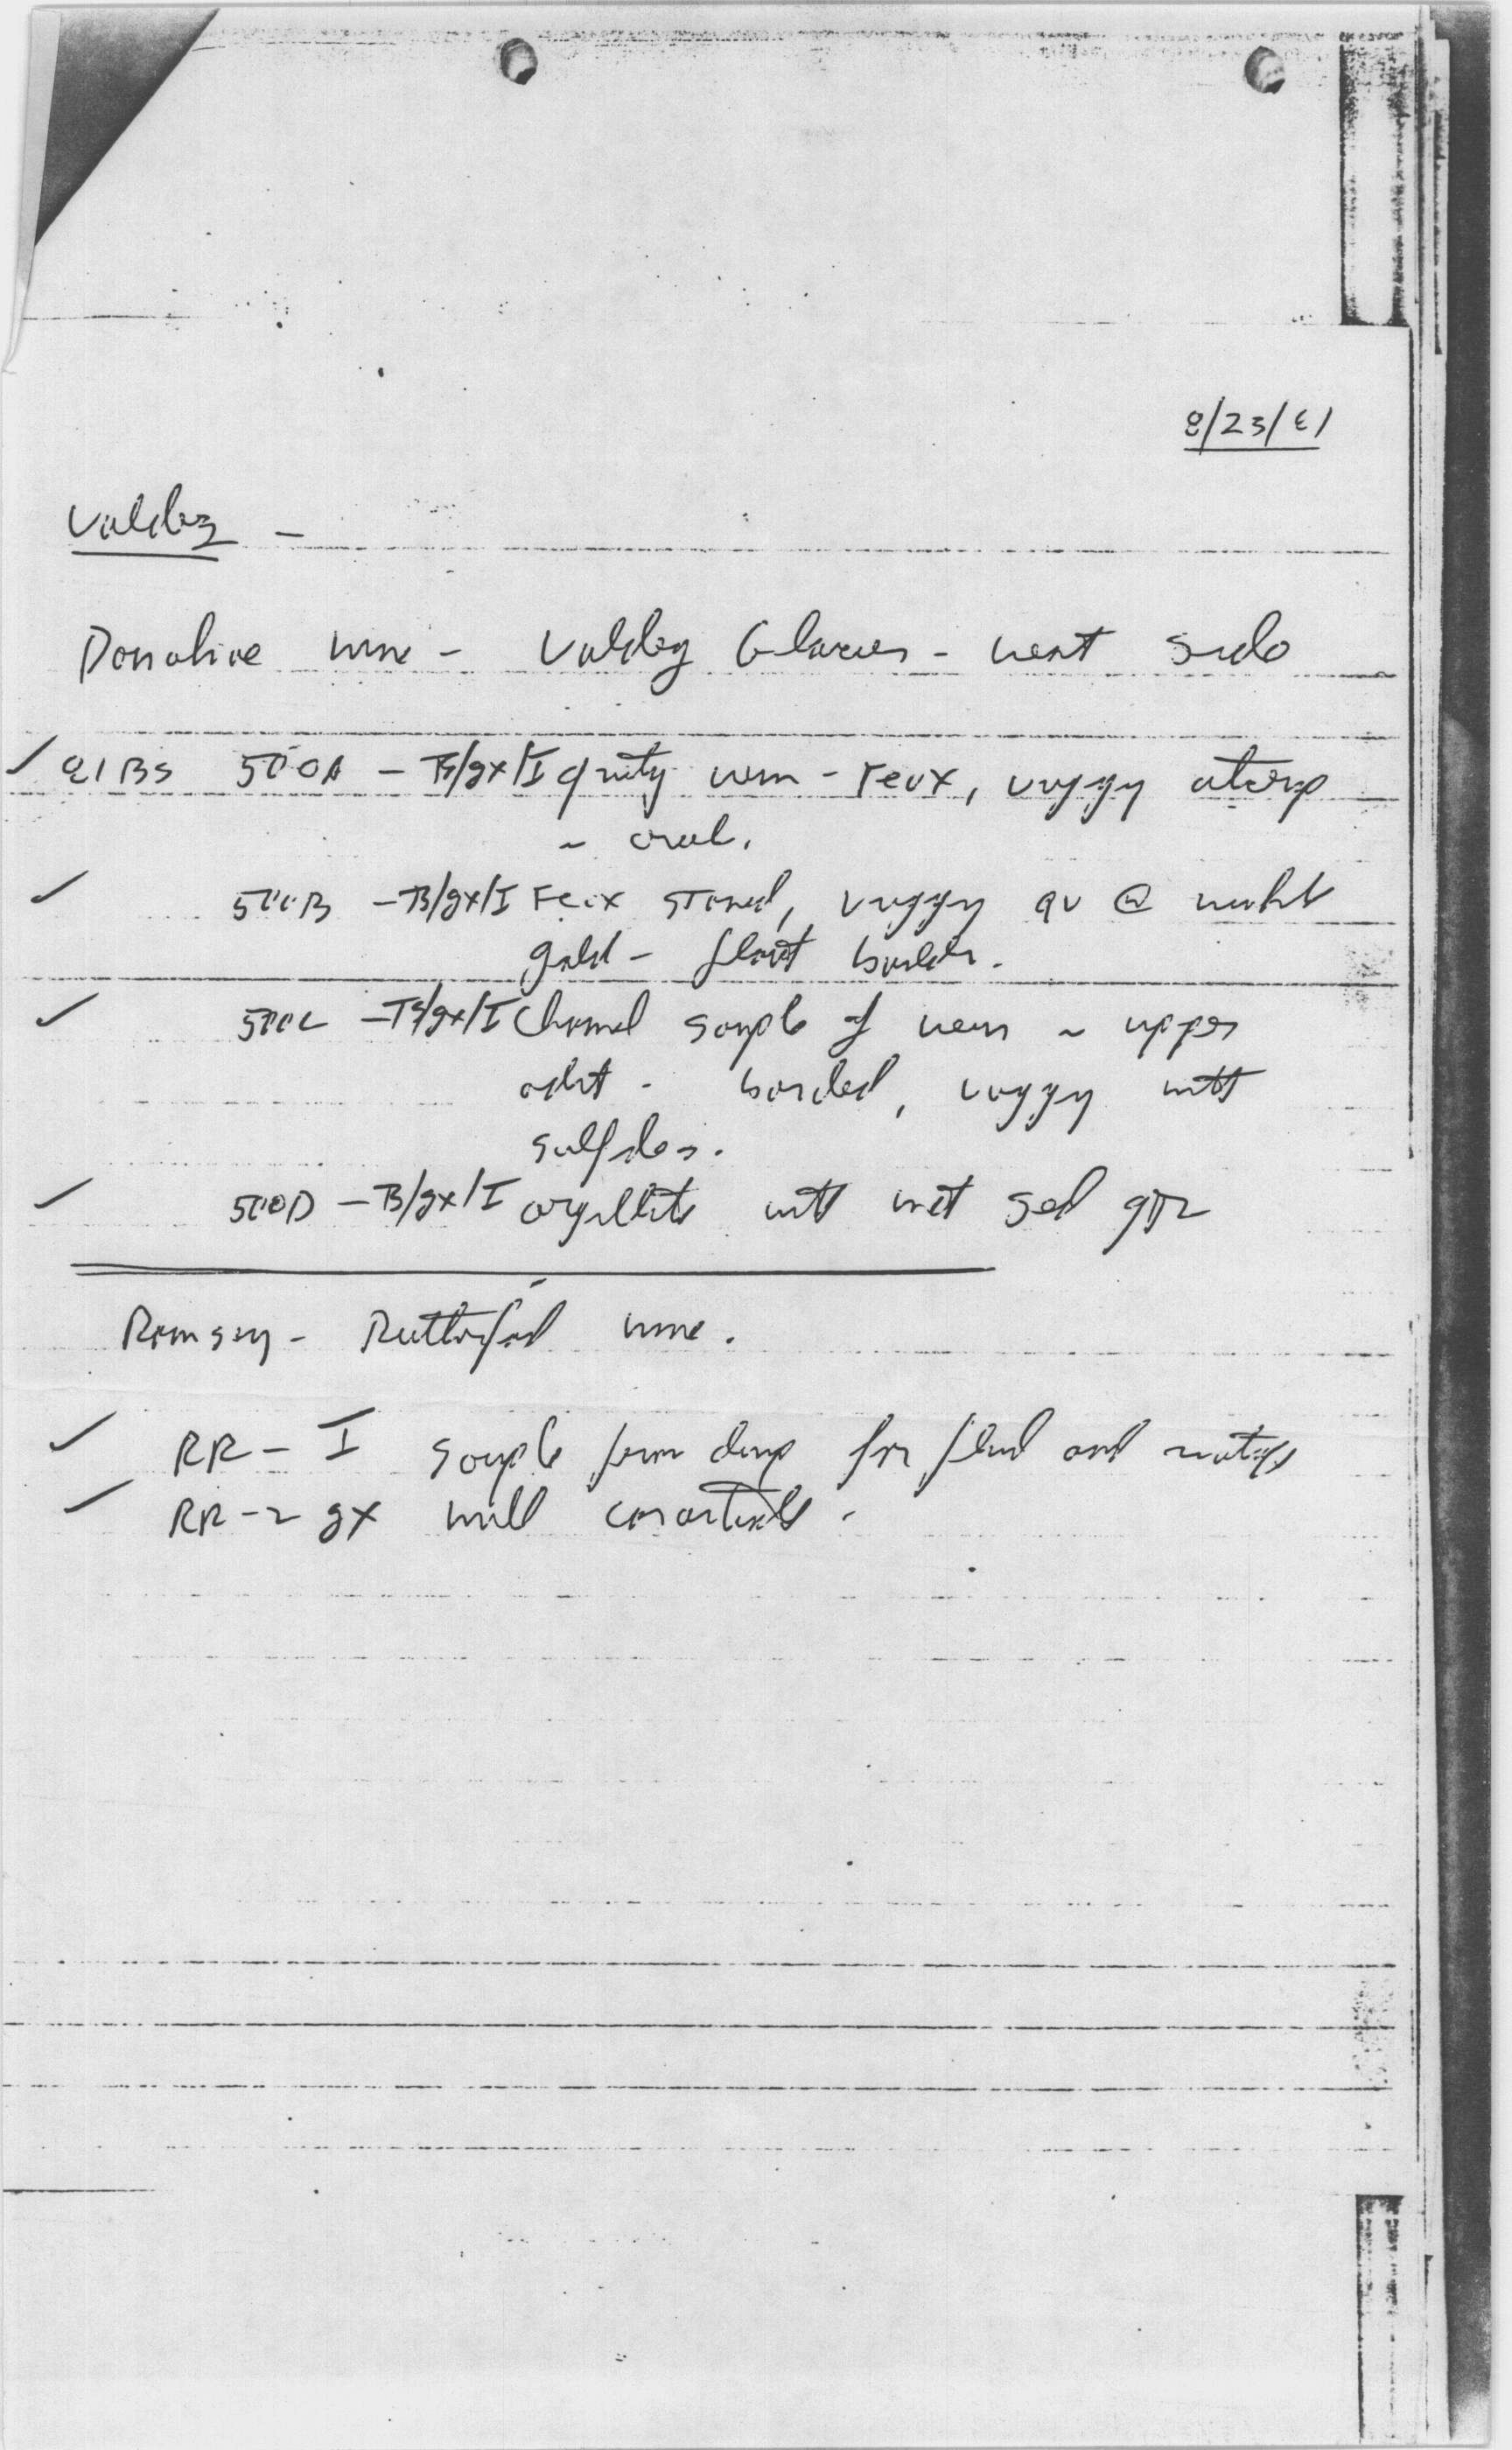 8/23/81
Valdez -
Donohue mine - Valdez Glacier - west side
81BS 500A - TS/gx/I qrtz vein - Feox, vuggy outcrop
~ creek.
500B - TS/gx/I Feox stained, vuggy qv @ visible
gold - float boulder.
500C - TS/gx/I Channel sample of vein ~ upper
adit - banded, vuggy with
sulfides.
500D - TS/gx/I argillite with met sed
Ramsay - Rutherford mine.
RR - I sample from dump for fluid and
RR-2 gx mill concentrate.